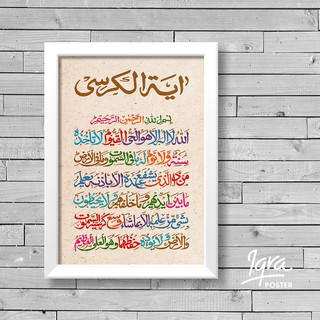 اية الكرسى
بسم الله الرحمن الرحيم
الله لا اله الا هو الحي القيوم لا تأخذه
سنة ولا نوم له ما في السموات وما في الارض
من ذا الذي يشفع عنده الا باذنه يعلم
ما بين ايديهم وما خلفهم ولا يحيطون
بشيء من علمه الا بما شاء وسع كرسيه السموات
والارض ولا يوده حفظهما وهو العلي العظيم
Iqra
POSTER